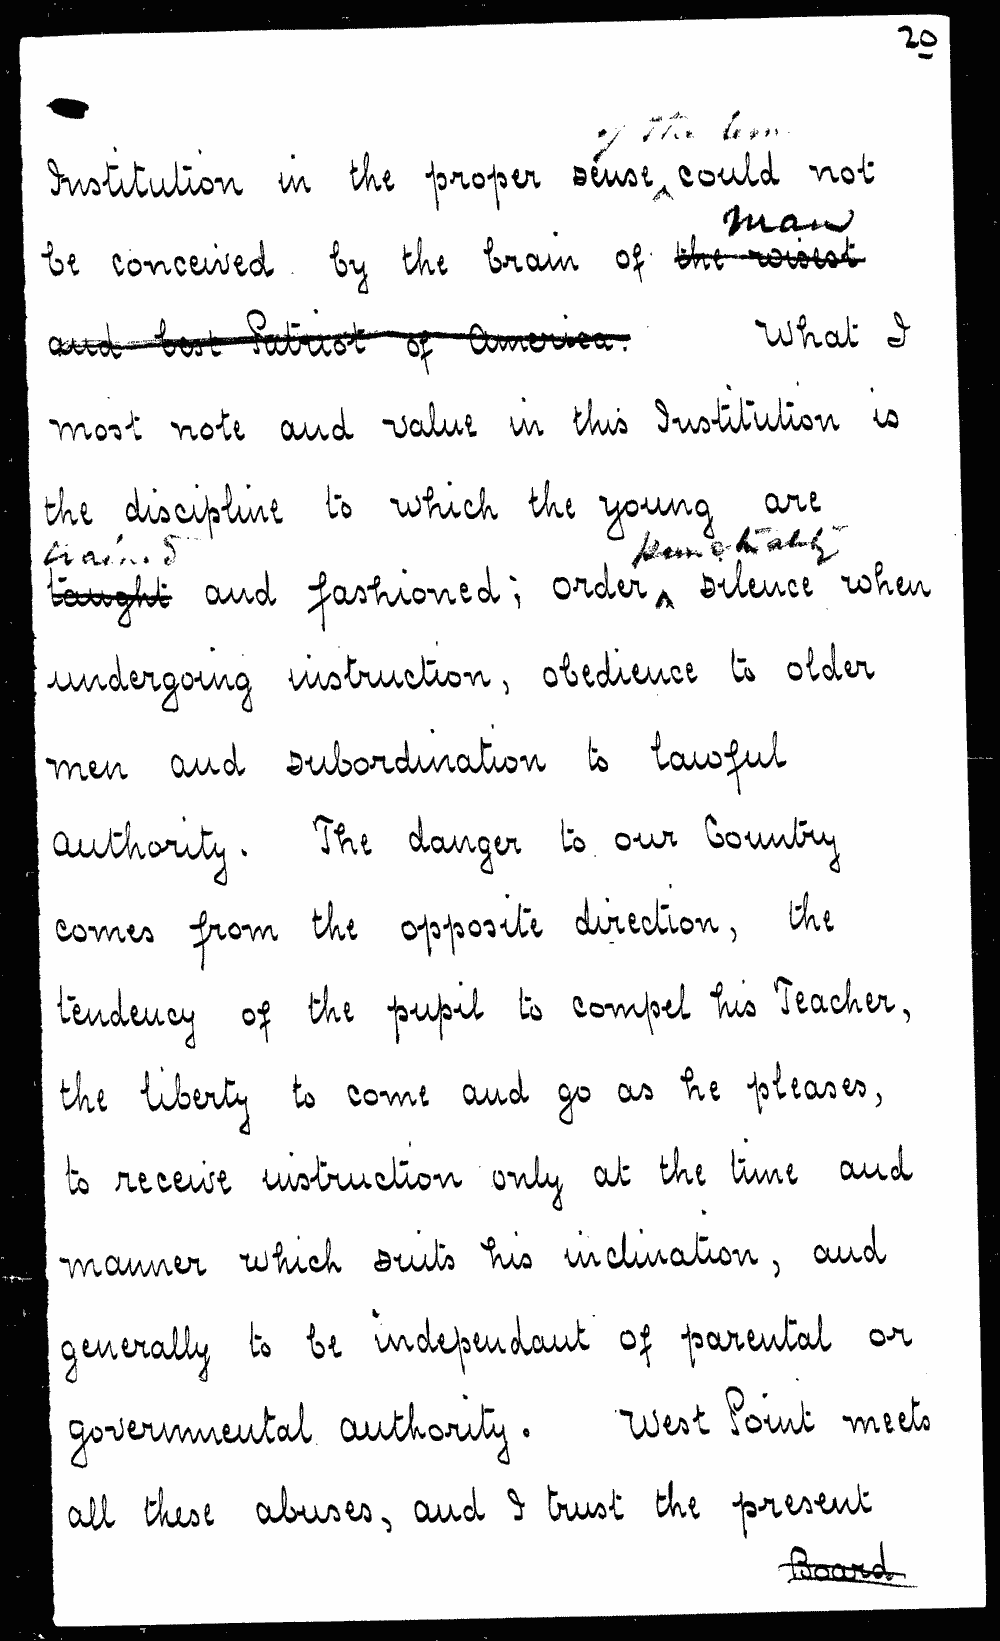 20
of the term
Institution in the proper sense ^ could not
man
be conceived by the brain of the wisest
and best Patriot of America. What I
most note and value in this Institution is
the discipline to which the young are
trained punctuality
taught and fashioned; order ^ silence when
undergoing instruction, obedience to older
men and subordination to lawful
authority. The danger to our Country
comes from the opposite direction, the
tendency of the pupil to compel his Teacher,
the liberty to come and go as he pleases,
to receive instruction only at the time and
manner which suits his inclination, and
generally to be independant of parental or
governmental authority. West Point meets
all these abuses, and I trust the present
Board